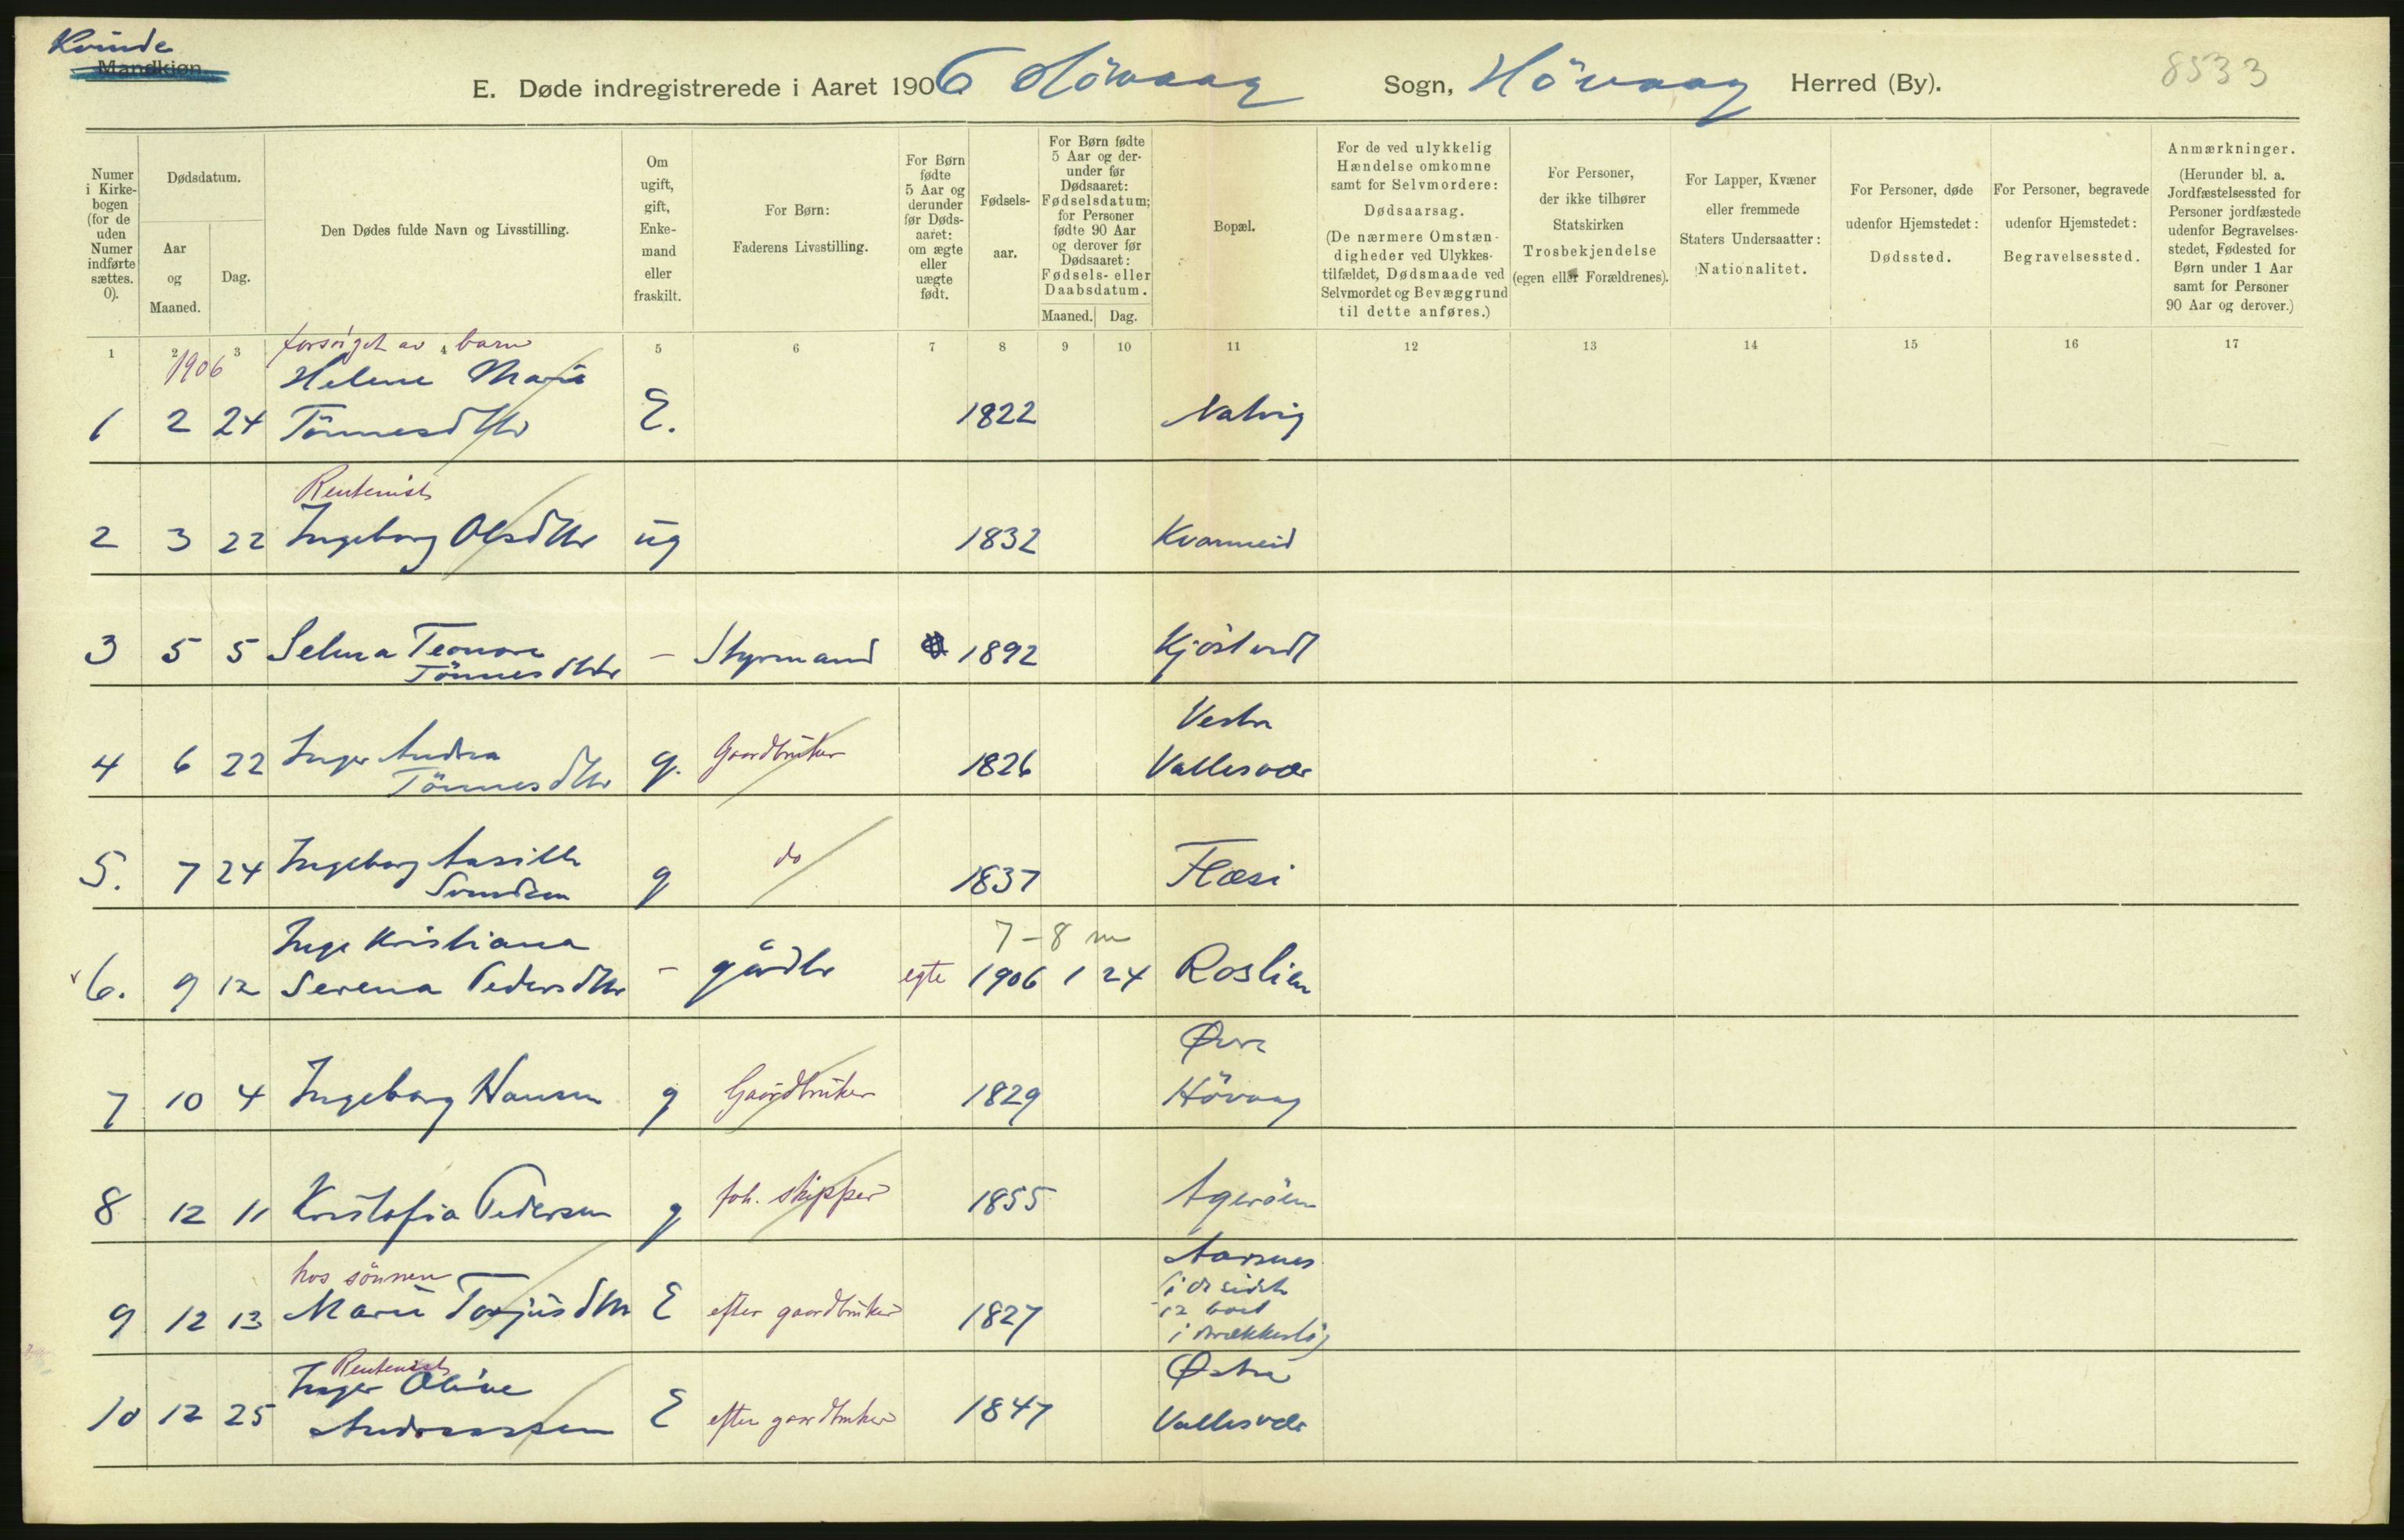 Kvinde
Mandkjøn.
E. Døde indregistrerede i Aaret 1906 Hövaag Sogn, Hövaag Herred (By). 8533
Numer i Kirkebogen (for de uden Numer indførte sættes. 0).
Dødsdatum.
Aar og Maaned.
Dag.
Den Dødes fulde Navn og Livsstilling.
Om ugift, gift, Enkemand eller fraskilt.
For Børn: Faderens Livsstilling.
For Børn fødte 5 Aar og derunder før Dødsaaret: om ægte eller uægte født.
Fødselsaar.
For Børn fødte 5 Aar og derunder før Dødsaaret: Fødselsdatum; for Personer fødte 90 Aar og derover før Dødsaaret: Fødsels- eller Daabsdatum.
Maaned. Dag.
Bopæl.
For de ved ulykkelig Hændelse omkomne samt for Selvmordere: Dødsaarsag. (De nærmere Omstændigheder ved Ulykkestilfældet, Dødsmaade ved Selvmordet og Bevæggrund til dette anføres.)
For Personer, der ikke tilhører Statskirken Trosbekjendelse (egen eller Forældrenes).
For Lapper, Kvæner eller fremmede Staters Undersaatter: Nationalitet.
For Personer, døde udenfor Hjemstedet: Dødssted.
For Personer, begravede udenfor Hjemstedet: Begravelsessted.
Anmærkninger. (Herunder bl. a. Jordfæstelsessted for Personer jordfæstede udenfor Begravelsesstedet, Fødested for Børn under 1 Aar samt for Personer 90 Aar og derover.)
1 2 3 4 5 6 7 8 9 10 11 12 13 14 15 16 17
1906 forsörget av barn
Helene Marie
1 2 24 Tönnesdtr E. 1822 Natvig
Rentenist
2 3 22 Ingeborg Olsdtr ug 1832 Kvanneid
3 5 5 Selma Teonore - Styrmand 1892 Kjöstvedt
Tönnesdtr
Vestre
4 6 22 Inger Andrea g. Gaardbruker 1826 Vallesvær
Tönnesdtr
5. 7 24 Ingeborg Aasille g do 1837 Flæsi
Svendsen
Inge Kristiana 7-8 m
6. 9 12 Serena Pedersdtr - gårdbr egte 1906 1 24 Roslien
Øvre
7 10 4 Ingeborg Hansen g Gaardbruker 1829 Hövaag
8 12 11 Kristofia Pedersen g foh. skipper 1855 Ageröen
hos sönnen Aarsnes
9 12 13 Marie Torjusdtr E efter gaardbruker 1827 i de sidste
12
i
Rentenist Østre
Inger Oline
10 12 25 Andreassen E efter gaardbruker 1847 Vallesvær